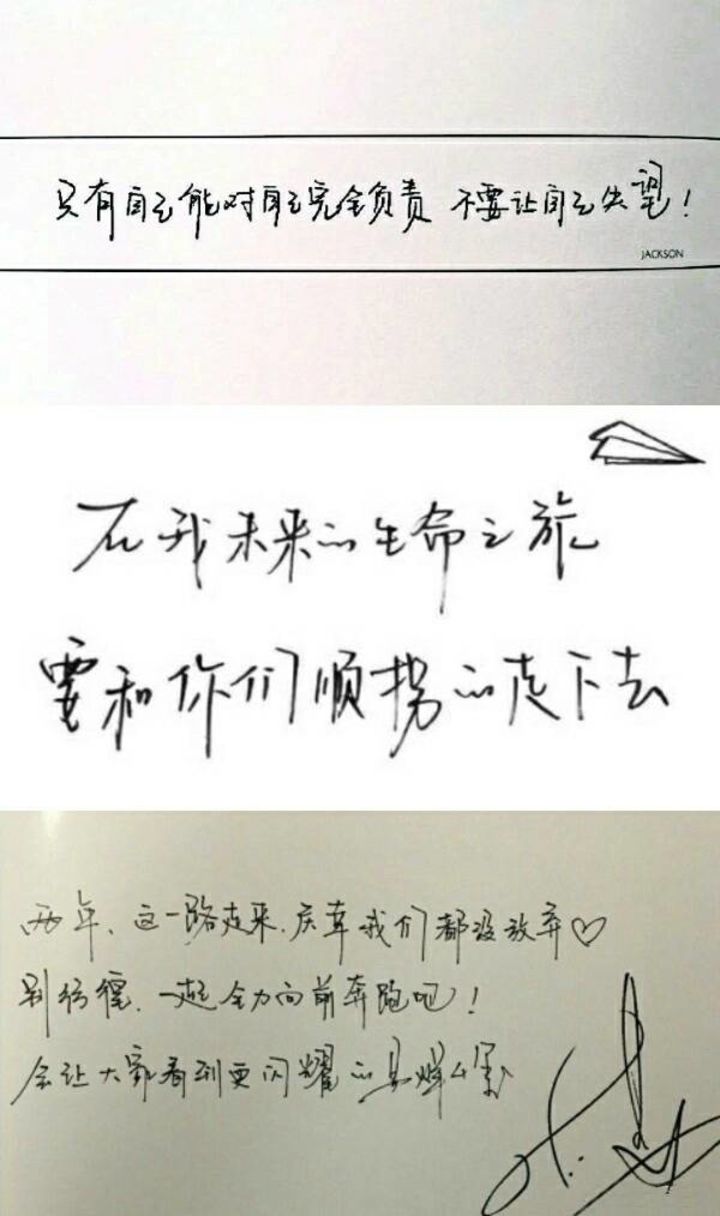 只有自己能对自己完全负责 不要让自己失望!
JACKSON
在我未来的生命之旅
要和你们顺拐的走下去
两年、这一路走来,庆幸我们都没放弃♡
别彷徨、一起全力向前奔跑吧!
会让大家看到更闪耀的易烊千玺